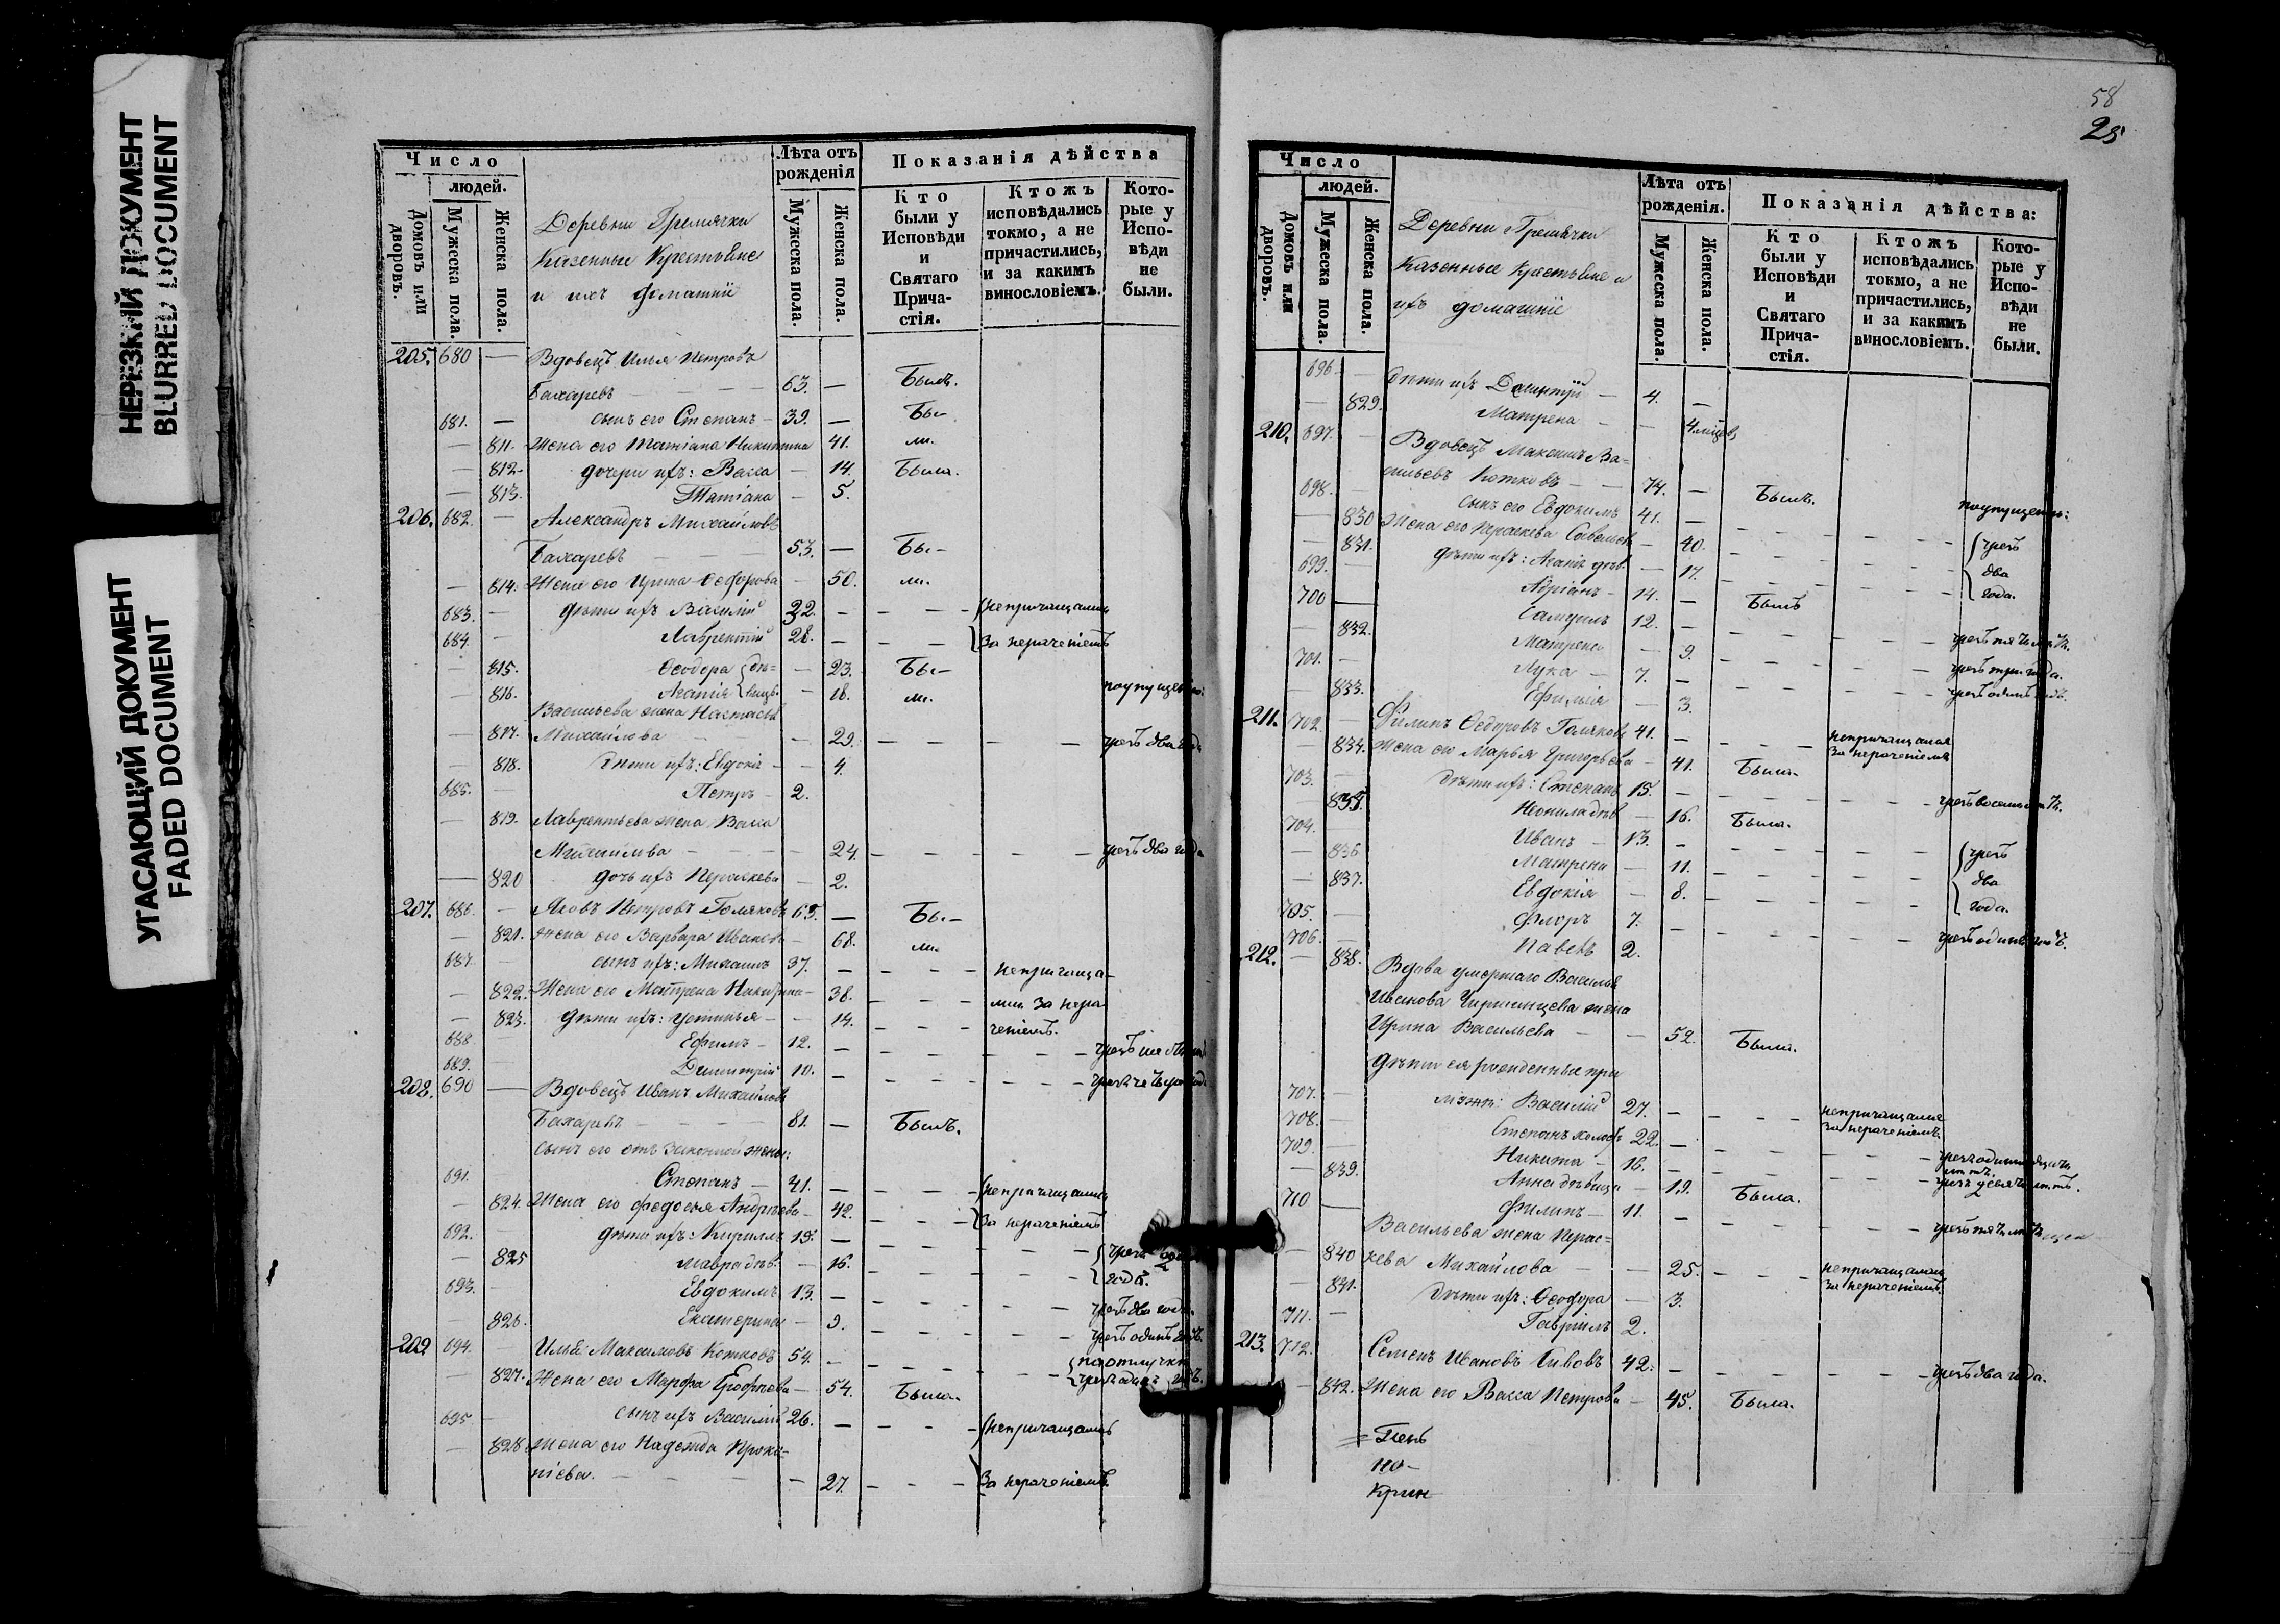 НЕРЕЗКИЙ ДОКУМЕНТ
BLURRED DOCUMENT
УГАСАЮЩИЙ ДОКУМЕНТ
FADED DOCUMENT
Число
людей.
Домовъ или дворовъ.
Мужеска пола.
Женска пола.
Деревни Гремячки
Казенные Крестьяне
и ихъ домашніе
Лѣта отъ рожденія
Мужеска пола.
Женска пола.
Показанія дѣйства
Кто были у Исповѣди и Святаго Причастія.
Ктожъ исповѣдались токмо, а не причастились, и за какимъ винословіемъ.
Которые у Исповѣди не были.
205. 680 — Вдовецъ Илья Петровъ
Бахаревъ — — 63. — Былъ.
681. — сынъ его Степанъ — 39. — Бы-
— 811. Жена его Татіана Никитина 41. ли.
— 812. дочери ихъ: Васса — 14. Была.
— 813. Татіана — 5.
206. 682. — Александръ Михайловъ
Бахаревъ — — — 53. — Бы-
— 814. Жена его Ирина Ѳедорова — 50. ли.
683. — дѣти ихъ Василій 32. — — — — непричащались
684. — Лаврентій 28. — — — за нераченіемъ
— 815. Ѳеодора дѣ- — 23. Бы-
— 816. Агапія вицы. — 18. ли. по упущенію:
Васильева жена Настасья
— 817. Михайлова — — 29. — — — — чрезъ два года
— 818. Дѣти ихъ: Евдокія — — 4.
685. — Петръ — 2.
— 819. Лаврентьева жена Васса
Михайлова — — — — 24. — — — — чрезъ два года
— 820 дочь ихъ Параскева — 2.
207. 686. — Яковъ Петровъ Голяковъ 65. — Бы-
— 821. Жена его Варвара Иванова — 68. ли.
687. — сынъ ихъ: Михаилъ 37. — — — — непричаща-
— 822. Жена его Матрена Никитина — 38. — — — лись за нера-
— 823. дѣти ихъ: Устинья — — 14. — — — ченіемъ.
688. — Ефимъ — 12. — — — — —
689. — Димитрій 10. — — — — —
208. 690 — Вдовецъ Иванъ Михайловъ
Бахаревъ — — — — 81. — Былъ.
сынъ его отъ законной жены:
691. Степанъ — 41. — — — — непричащались
— 824. Жена его Федосья Андрѣева — 42. — — — за нераченіемъ
692. дѣти ихъ: Кириллъ 19. — — — — — чрезъ
— 825 Мавра дѣв. — 16. — — — — года.
693. — Евдокимъ 13. — — — — — чрезъ два года.
— 826. Екатерина — 9. — — — — — чрезъ одинъ годъ.
209. 694. — Илья Максимовъ Котковъ 54. — — — — — по отлучкѣ
— 827. Жена его Марфа Ерофѣева — 54. Была. чрезъ одинъ годъ.
695 — сынъ ихъ Василій 26. — — — — непричащались
— 828 Жена его Надежда Проко-
піева. — — — — 27. — — — за нераченіемъ.
58
25
Число
людей.
Домовъ или дворовъ.
Мужеска пола.
Женска пола.
Деревни Гремячки
Казенные Крестьяне и
ихъ домашніе
Лѣта отъ рожденія.
Мужеска пола.
Женска пола.
Показанія дѣйства:
Кто были у Исповѣди и Святаго Причастія.
Ктожъ исповѣдались токмо, а не причастились, и за какимъ винословіемъ.
Которые у Исповѣди не были.
696 — дѣти ихъ Димитрій — 4. —
— 829. Матрена — — 4 мѣсяц.
210. 697. — Вдовецъ Максимъ Ва-
сильевъ Котковъ — — 74. — Былъ.
698. — сынъ его Евдокимъ 41. — по упущенію:
— 830 Жена его Параскева Савельева — 40. — — — — — чрезъ
— 831. дѣти ихъ: Агапія дѣв. — 17. — — — — — два
699. — Адріанъ — 14. — — — — — года.
700 — Самуилъ 12. — Былъ
— 832. Матрена — 9. — — — — — чрезъ пять лѣтъ.
701. — Лука — 7. — — — — — чрезъ три года.
— 833. Ефимія — 3. — — — — — чрезъ одинъ годъ.
211. 702. — Филипъ Ѳедоровъ Голяковъ 41. — — — — непричащался
— 834. Жена его Марья Григорьева — 41. Была. за нераченіемъ
703. — Дѣти ихъ: Степанъ 15. — — — — — чрезъ восемь лѣтъ.
— 835. Неонила дѣв — 16. Была.
704. — Иванъ — 13. — — — — — чрезъ
— 836 Матрена — 11. — — — — — два
— 837. Евдокія — 8. — — — — — года.
705. — Флоръ 7. — — — — — чрезъ одинъ годъ.
706. — Павелъ 2.
212. — 838. Вдова умершаго Василья
Иванова жена
Ирина Васильева — — 52. Была.
дѣти ея рожденные при
707. — мужѣ: Василій 27. — — — непричащался за нераченіемъ.
708. — Степанъ холост 22. —
709. — Никита — 16. — — — — —
— 839. Анна дѣвица — 19. Была.
710 — Филипъ — 11. — — — — — чрезъ пять лѣтъ
Васильева жена Парас-
— 840 кева Михайлова — — 25. — — — непричащалась за нераченіемъ
— 841. Дѣти ихъ: Ѳеодора — 3.
711. — Гавріилъ 2.
213. 712. Семенъ Ивановъ Бивовъ 42. — — — — — — чрезъ два года.
— 842. Жена его Васса Петрова — 45. Была.